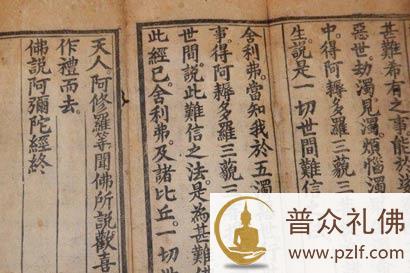 甚難希有之事能於
惡世。劫濁見濁。煩惱濁
中。得阿耨多羅三藐三
生。說是一切世間難
舍利弗。當知我於五濁
事。得阿耨多羅三藐三
世間。說此難信之法。是為甚難
此經已。舍利弗。及諸比丘。一切世
天人阿修羅等。聞佛所說。歡喜
作禮而去。
佛說阿彌陀經終
普众礼佛
www.pzlf.com